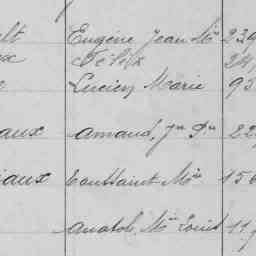 lt Eugène Jean Mie 239
x Félix 24
Lucien Marie 95
aux Amand, Jn Bn 22
iaux Toussaint Mie 156
Anatol, Mie Louis 119